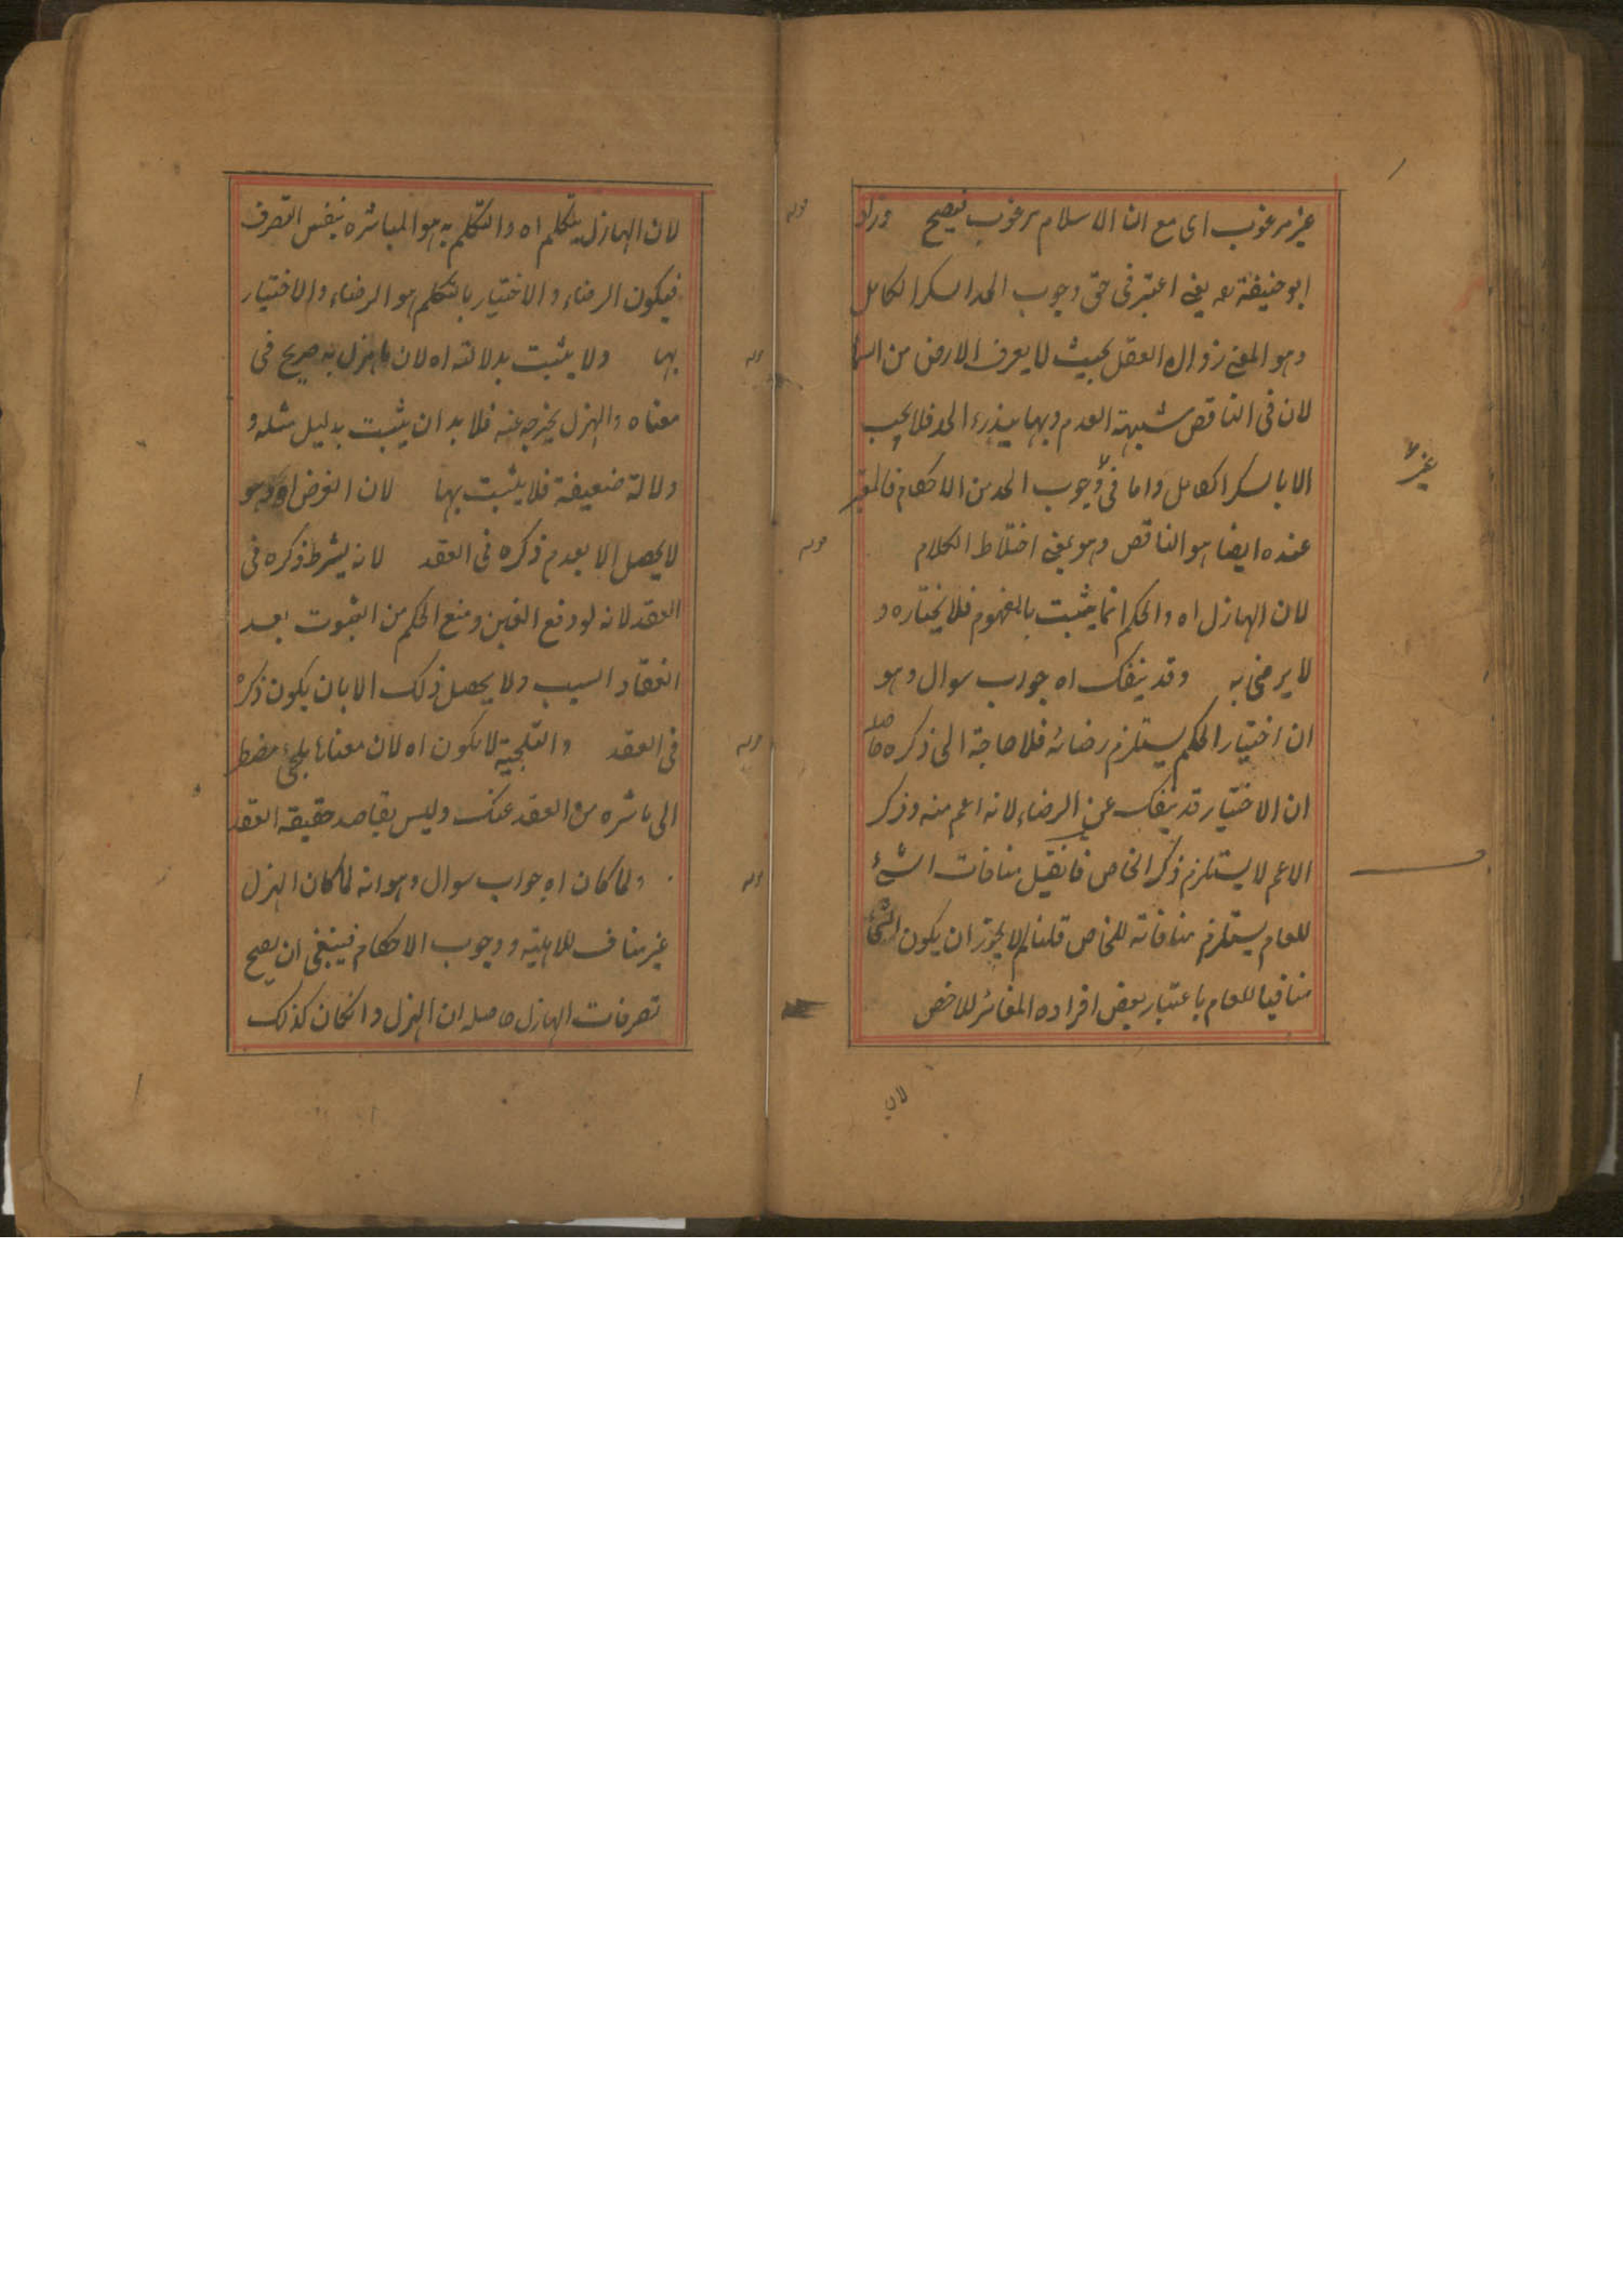 غير مرغوب اى مع ان الاسلام مرغوب فيصح وزاد
ابو حنيفة رحه يعنى اعتبر فى حق وجوب الحد السكر الكامل
وهو المعنى زوال العقل بحيث لا يعرف الارض من السما
لان فى الناقص شبهة العدم وبها يندرء الحد فلا يجب
الا بالسكر الكامل واما فى وجوب الحد من الاحكام فالمعتبر
غير
عنده ايضا هو الناقص وهو بمعنى اختلاط الكلام
لان الهازل اه والحكم انما يثبت بالمفهوم فلا يختاره و
لا يرضى به وقد ينفك اه جواب سوال وهو
ان اختيار الحكم يستلزم رضائه فلا حاجة الى ذكره حاصله
ان الاختيار قد ينفك عن الرضاء لانه اعم منه وذكر
الاعم لا يستلزم ذكر الخاص فان قيل منافات الشئ
للعام يستلزم منافاته للخاص قلنا لم لا يجوز ان يكون الشئ
منافيا للعام باعتبار بعض افراده المغائر للاخص
لان
لان الهازل يتكلم اه والتكلم به هو المباشره بنفس التصرف
فيكون الرضاء والاختيار بالتكلم هو الرضاء والاختيار
بها ولا يثبت بدلالته اه لان ما هزل به صريح فى
معناه والهزل يخرجه عنه فلا بد ان يثبت بدليل مثله و
دلالة ضعيفة فلا يثبت بها لان الغرض اه وهو
لا يحصل الا بعدم ذكره فى العقد لانه يشرط ذكره فى
العقد لانه لدفع الغبن ومنع الحكم من الثبوت بعد
انعقاد السبب ولا يحصل ذلك الا بان يكون ذكره
فى العقد والتلجية لا يكون اه لان معناها يلجئ مضطر
الى باشره من العقد عنك وليس بقاصد حقيقة العقد
ولما كان اه جواب سوال وهو انه لما كان الهزل
غير مناف للاهلية ووجوب الاحكام فينبغى ان يصح
تصرفات الهازل حاصله ان الهزل وان كان كذلك